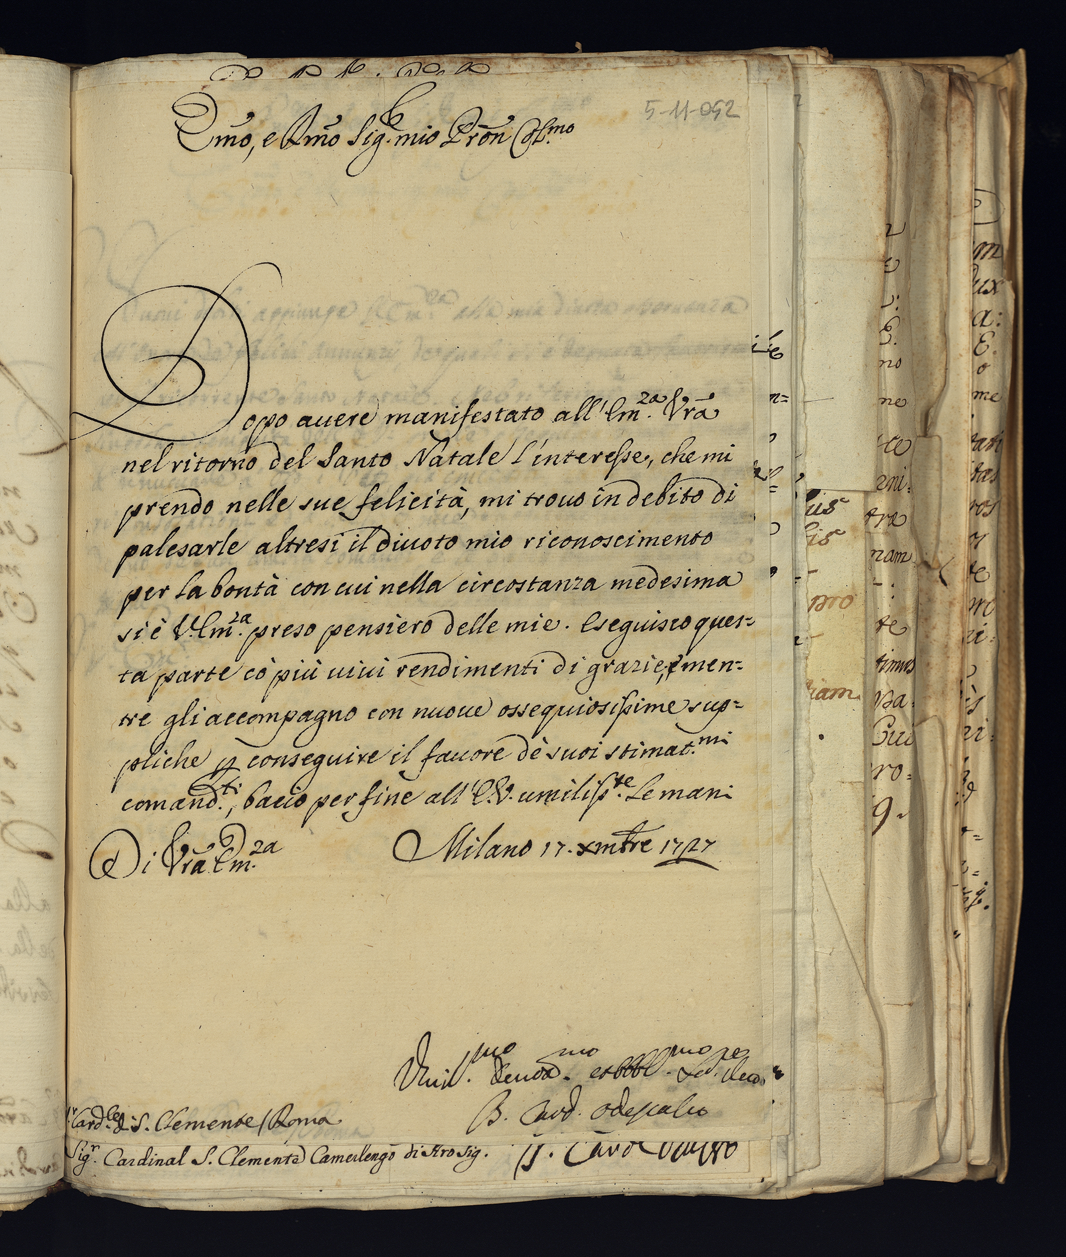 5-11-052
Emo, e Rmo Sig.r mio Pron Col.mo
Dopo auere manifestato all'Em.za Vra
nel ritorno del Santo Natale l'interesse, che mi
prendo nelle sue felicità, mi trouo in debito di
palesarle altresì il diuoto mio riconoscimento
per la bontà con cui nella circostanza medesima
si è V. Em.za preso pensiero delle mie. Eseguisco ques=
ta parte cò più uiui rendimenti di grazie, e men=
tre gli accompagno con nuoue ossequiosissime sup=
pliche p conseguire il fauore dè suoi stimat.mi
comand.ti, bacio per fine all'E.V. umiliss.te le mani
Di Vra Em.za Milano 17. Xmbre 1727
Umil.mo Deuot.mo
B. Card. Odescalco
Card.le di S. Clemente / Roma
Sig.r Cardinal S. Clemente Camerlengo di Nro Sig.